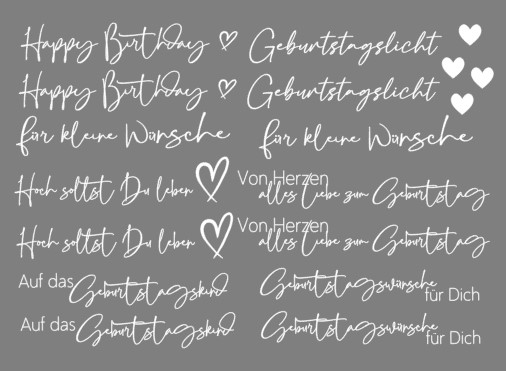 Happy Birthday
Geburtstagslicht
Happy Birthday
Geburtstagslicht
für kleine Wünsche
für kleine Wünsche
Hoch sollst Du leben
Von Herzen
alles Liebe zum Geburtstag
Hoch sollst Du leben
Von Herzen
alles Liebe zum Geburtstag
Auf das Geburtstagskind
Geburtstagswünsche
für Dich
Auf das Geburtstagskind
Geburtstagswünsche
für Dich